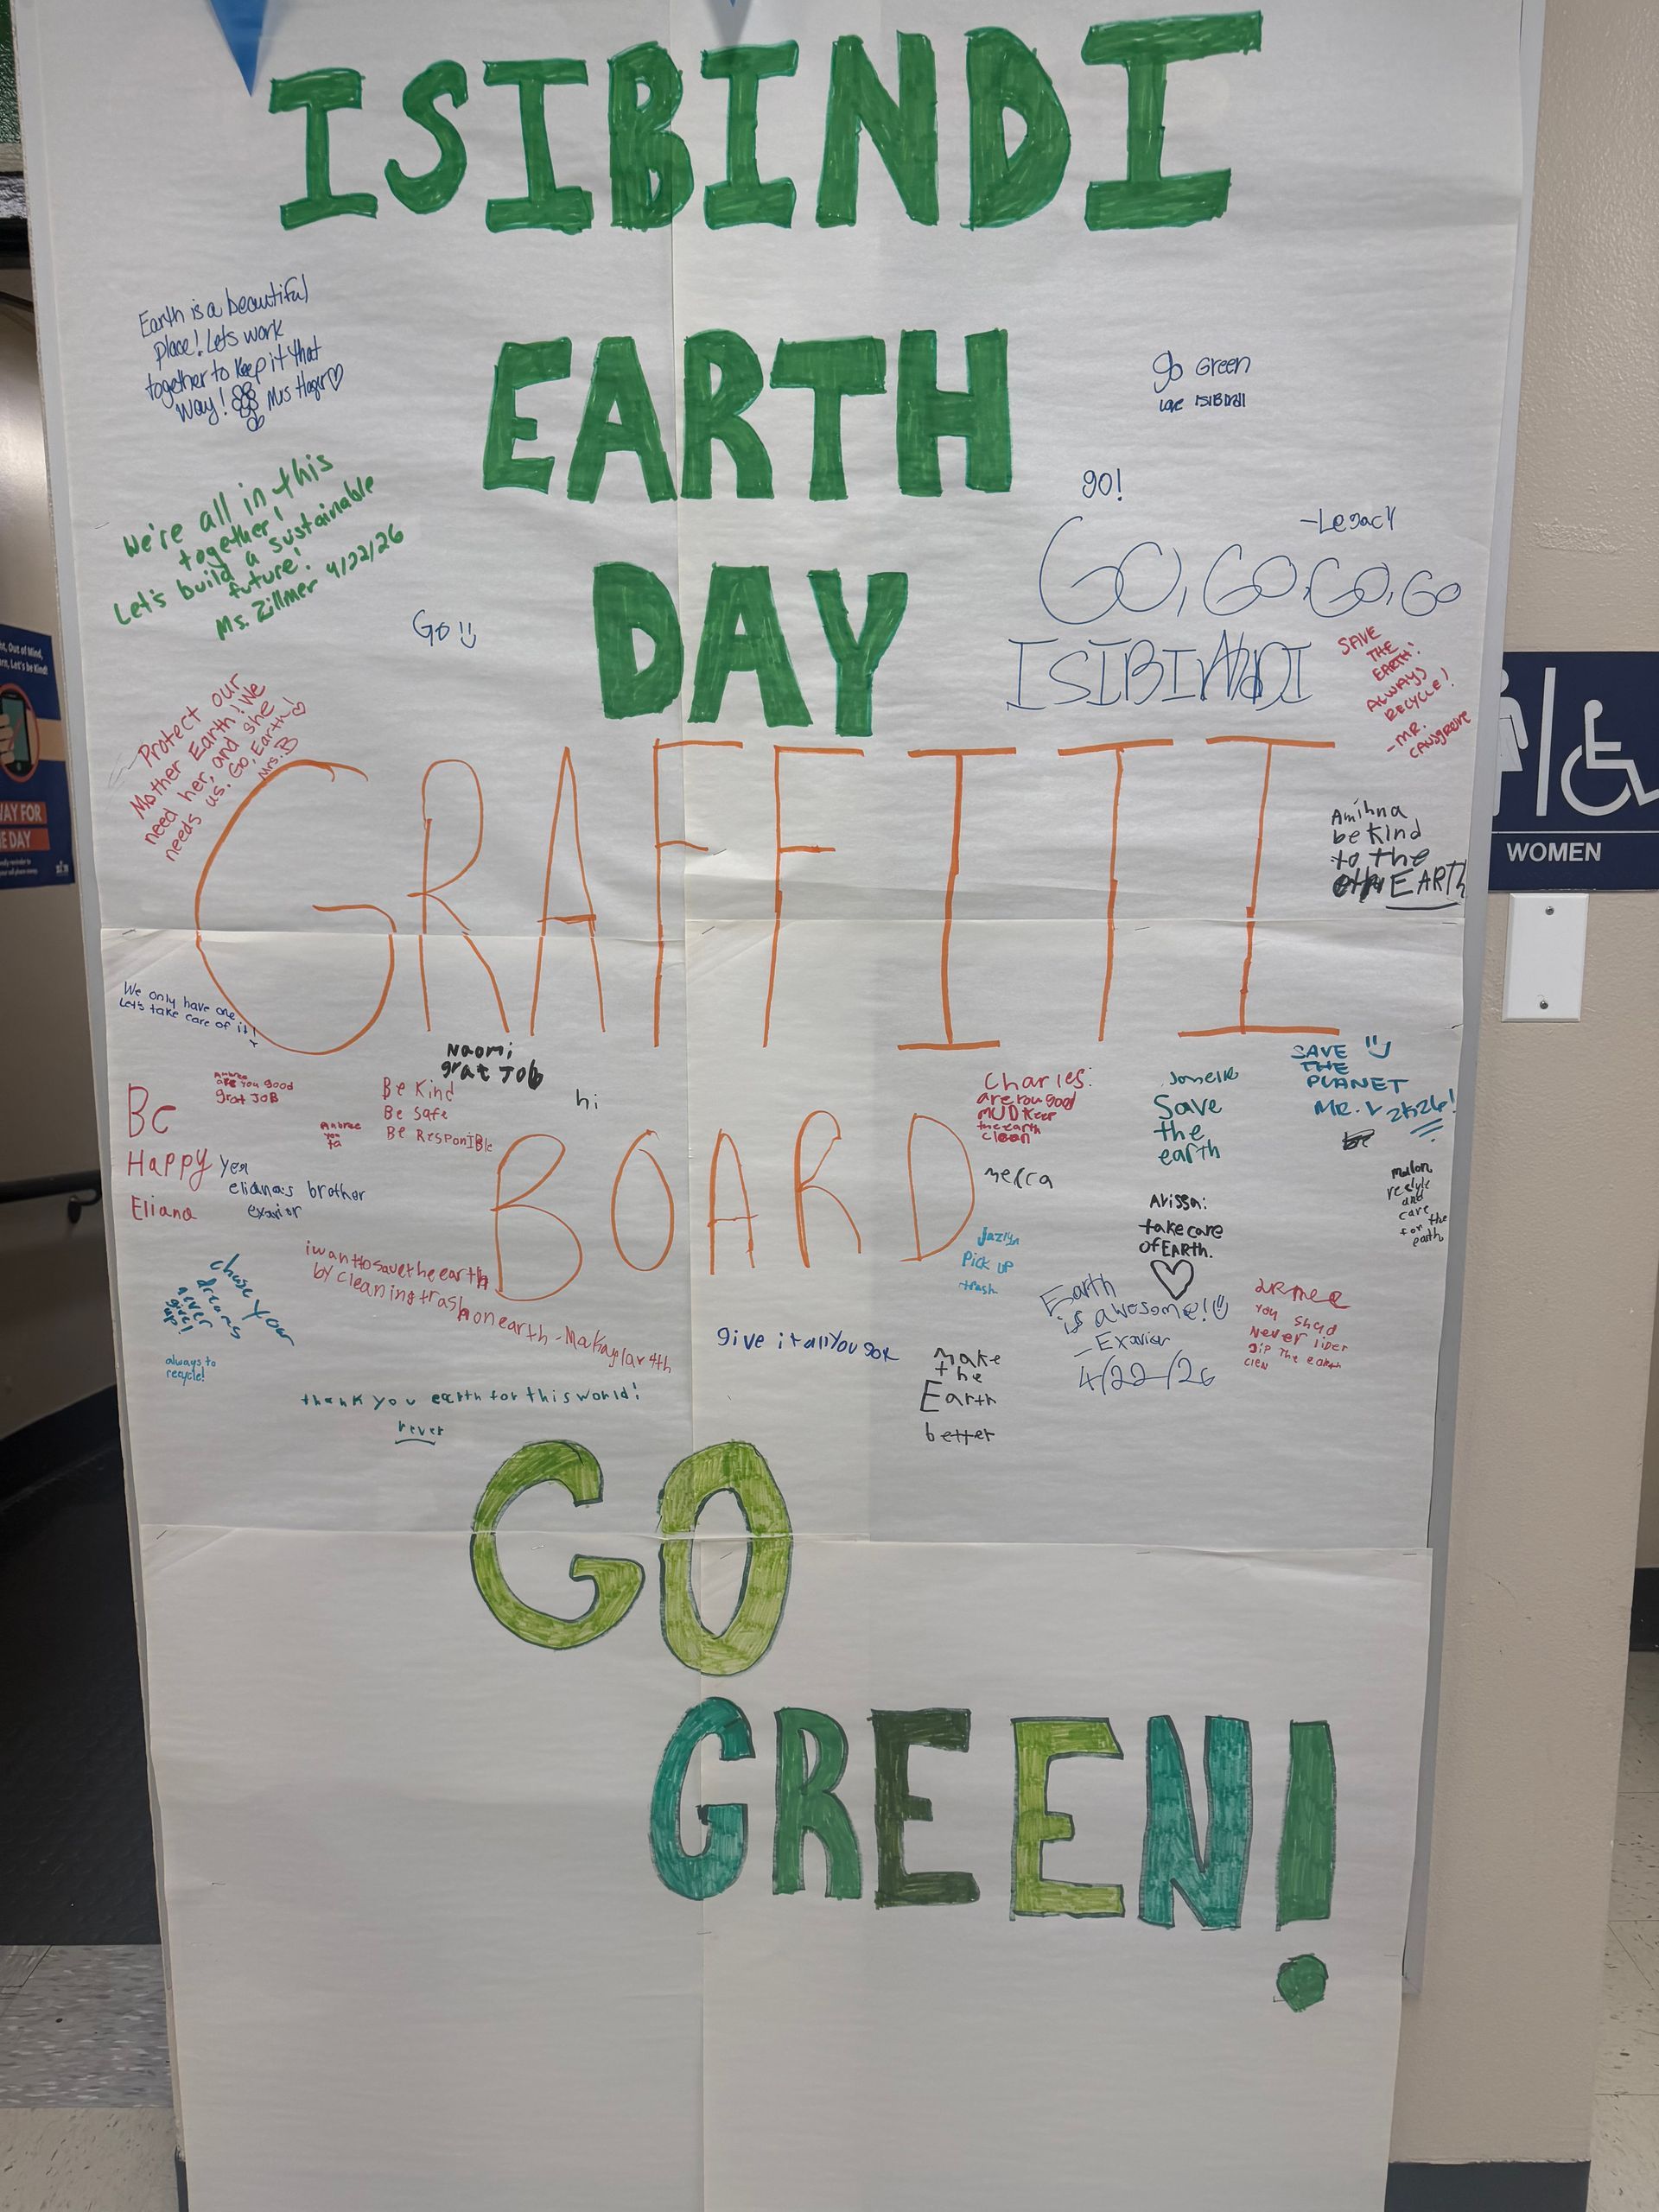 ISIBINDI
EARTH
DAY
GRAFFITI
BOARD
GO
GREEN!
Earth is a beautiful
place! Lets work
together to keep it that
way! Mrs Hager
We're all in this
together!
Let's build a sustainable
future!
Ms. Zillmer 4/22/26
Go
Protect our
Mother Earth! We
need her, and she
needs us. Go, Earth!
Mrs. B
go Green
love ISIBINDI
go!
-Legacy
GO, GO, GO, GO
ISIBINDI
SAVE
THE
EARTH!
ALWAYS
RECYCLE!
-MR.
Amihna
be kind
to the
EARTH
We only have one
Let's take care of it!
Naomi
grat JOB
are you good
grat JOB
Be Kind
Be Safe
Be ResponIBle
hi
Be
Happy
Eliana
yea
eliana's brother
exavior
chase your
dreams
never
give
up!
always to
recycle!
i want to save the earth
by cleaning trash on earth - Makaylar 4th
thank you earth for this world!
rever
Charles:
are you good
MUD Keep
the earth
clean
merca
Jazlyn
Pick up
trash
give it all you got
make
the
Earth
better
Jonelle
Save
the
earth
Arissa:
take care
of EARTH.
Earth
is awesome!
- Exavior
4/22/26
SAVE
THE
PLANET
MR. V 2K26!
be
and
care
for the
earth
you shud
Never
the earth
clen
WOMEN
t, Out of Mind,
rn, Let's be Kind!
WAY FOR
E DAY